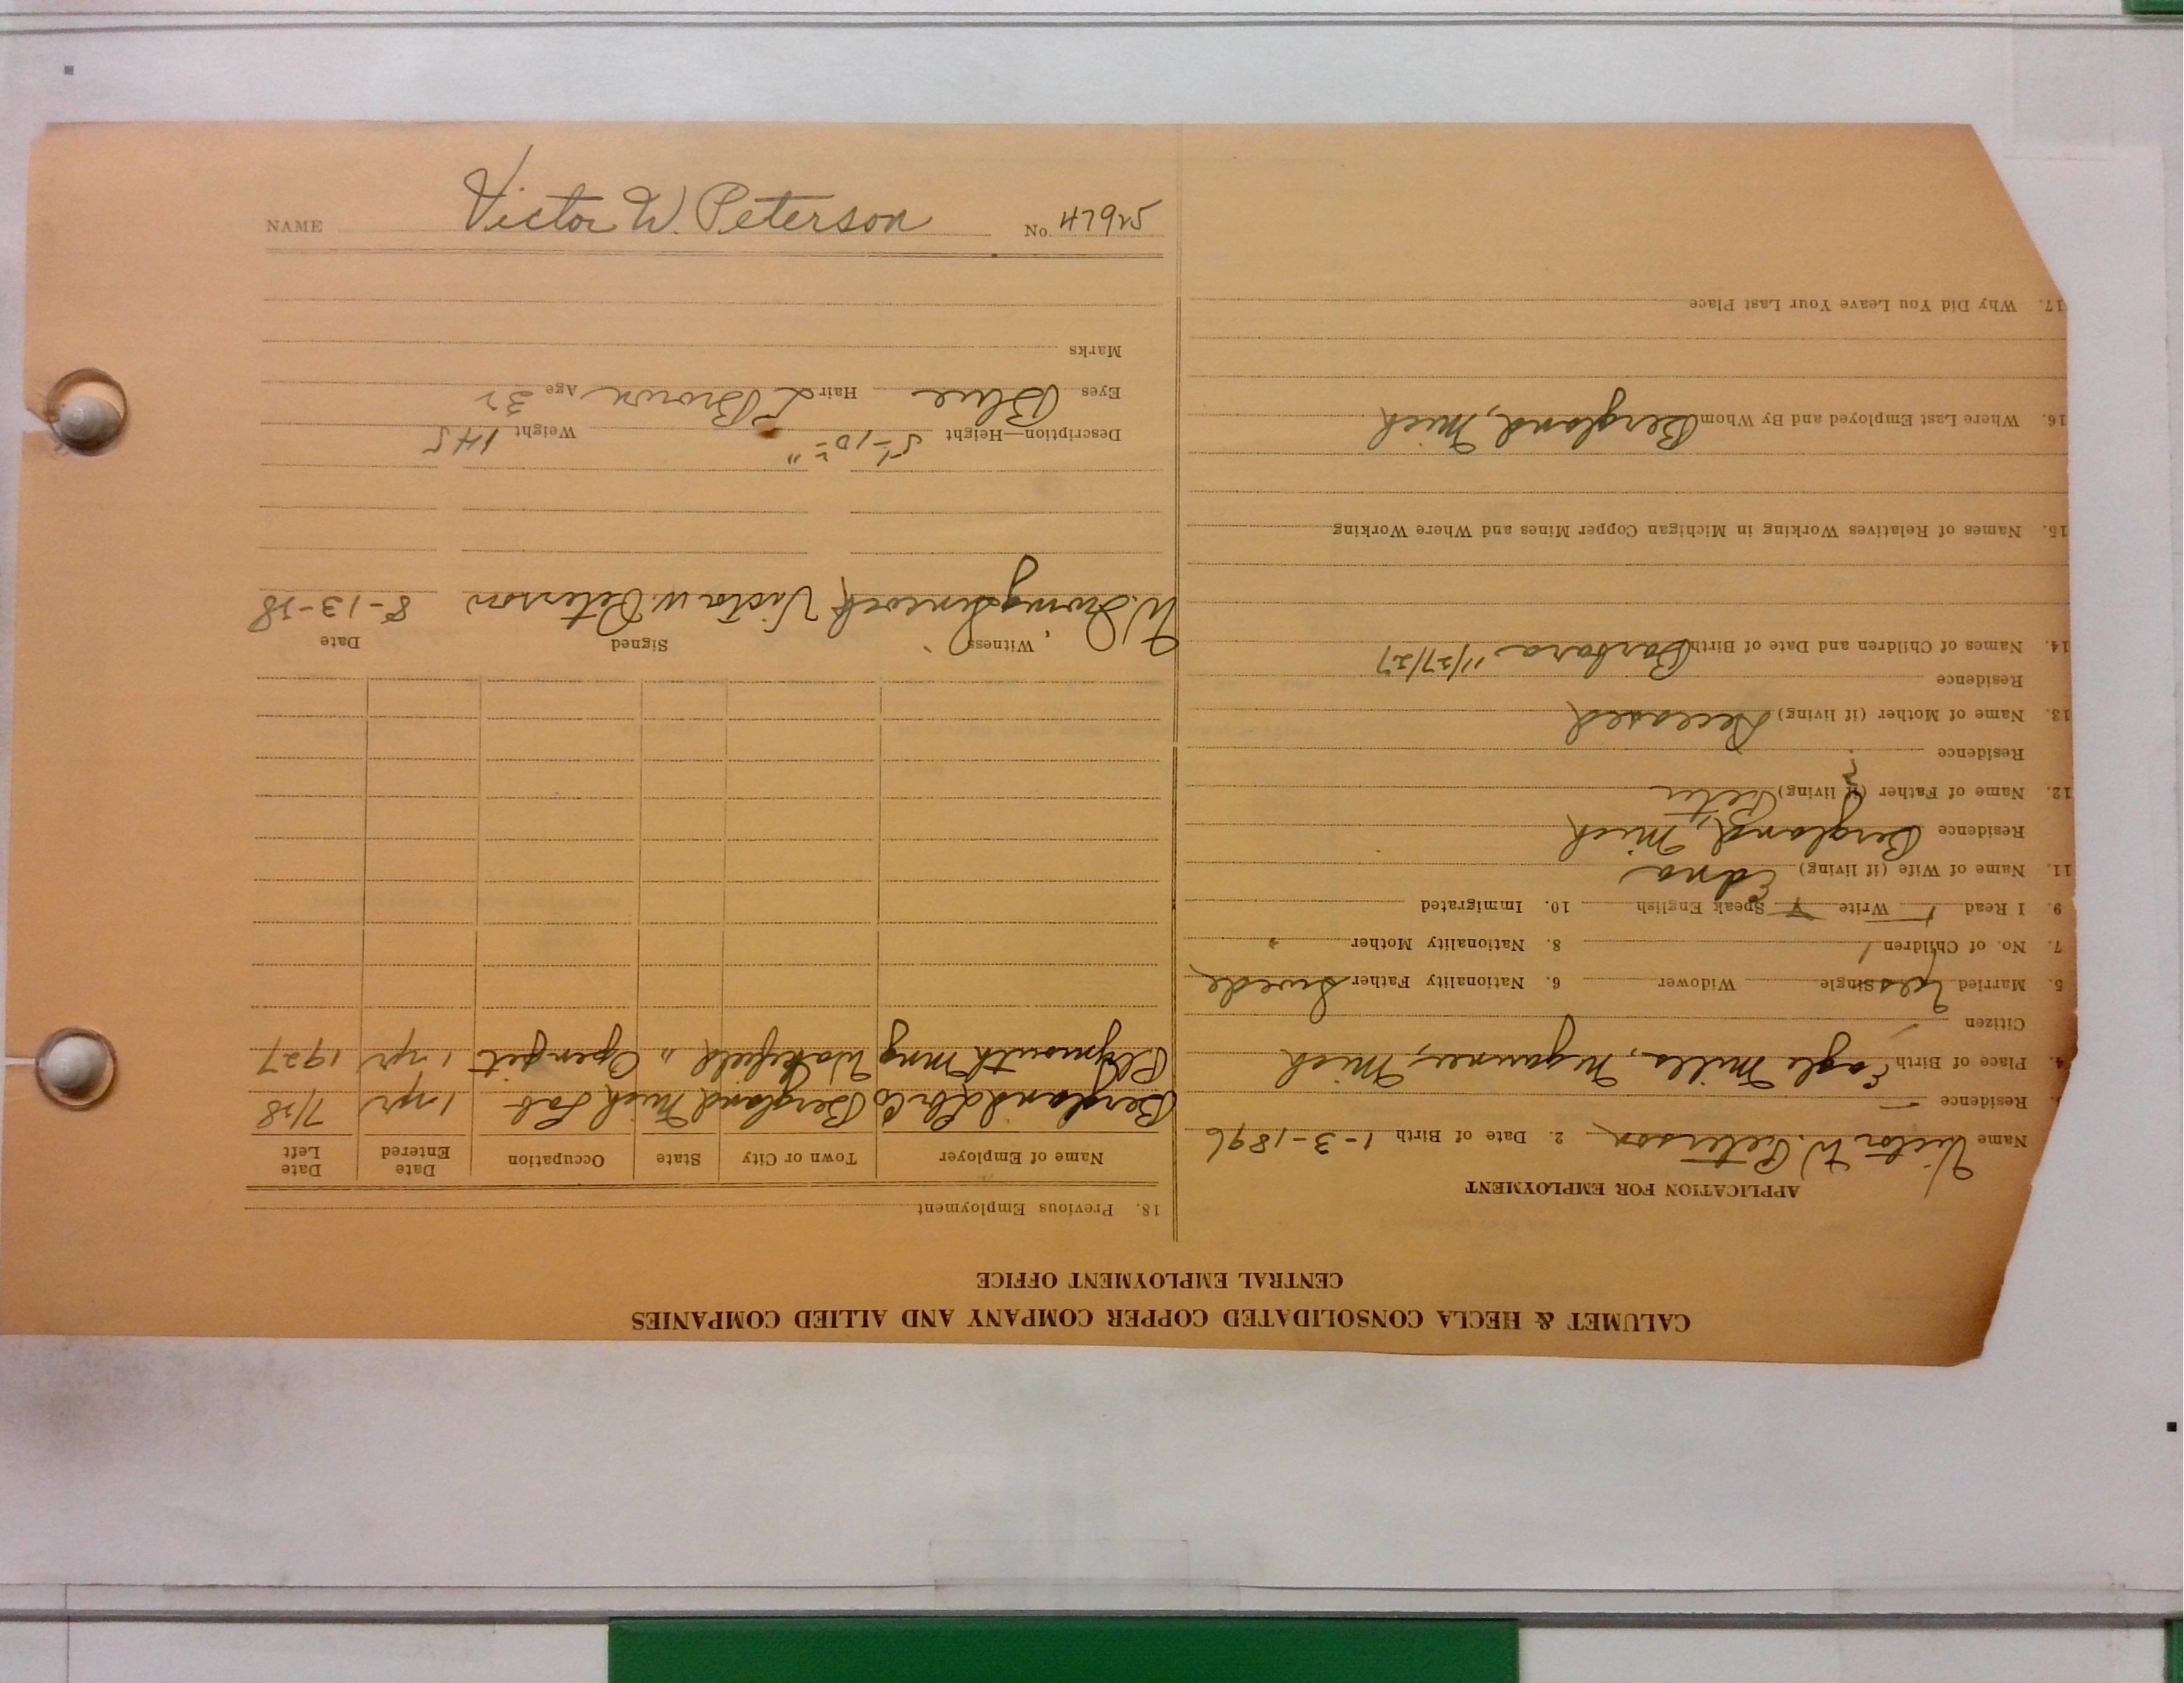 NAME Victor W. Peterson No. 47925
CALUMET & HECLA CONSOLIDATED COPPER COMPANY AND ALLIED COMPANIES
CENTRAL EMPLOYMENT OFFICE
APPLICATION FOR EMPLOYMENT
Name Victor W. Peterson 2. Date of Birth 1-3-1896
3. Residence
4. Place of Birth Eagle Mills, Negaunee, Mich
Citizen
5. Married Yes Single Widower 6. Nationality Father Swede
7. No. of Children 1 8. Nationality Mother "
9. I Read Write Speak English 10. Immigrated
11. Name of Wife (if living) Edna
Residence Bergland, Mich
12. Name of Father (if living) Peter
Residence
13. Name of Mother (if living) Deceased
Residence
14. Names of Children and Date of Birth Barbara 11/27/27
15. Names of Relatives Working in Michigan Copper Mines and Where Working
16. Where Last Employed and By Whom Bergland, Mich
17. Why Did You Leave Your Last Place
18. Previous Employment
Name of Employer Town or City State Occupation Date Entered Date Left
Bergland Lbr Co Bergland Mich Lab 1 yr 7/28
Plymouth Mng Wakefield " Open pit 1 yr 1927
Witness Signed Date
W. Irving Victor W. Peterson 8-13-28
Description—Height 5'-10½" Weight 145
Eyes Blue Hair L Brown Age 32
Marks